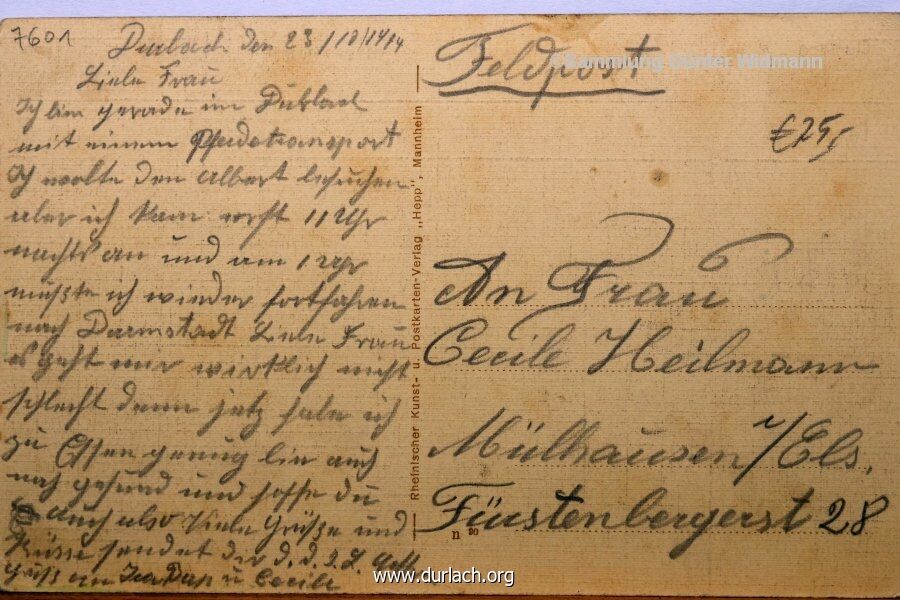 7601
Durlach den 23/10/1914
Liebe Frau
Ich bin gerade im Durlach
mit einem Pferdetransport
Ich wolte den Albert besuchen
aber ich kam erst 11 Uhr
nachts an und um 1 Uhr
mußte ich wieder fortfahren
nach Darmstadt Liebe Frau
es geht mir wirklich nicht
schlecht denn jetz habe ich
zu Essen genug bin auch
noch gesund und hoffe du
auch also Viele Grüße und
Küsse sendet der d. d. l.
Gruß an u Cecile
Rheinischer Kunst- u. Postkarten-Verlag „Hepp", Mannheim
Feldpost
©Sammlung Günter Widmann
€25,
An Frau
Cecile Heilmann
Mülhausen i/Els.
Fürstenbergerst 28
n 20
www.durlach.org